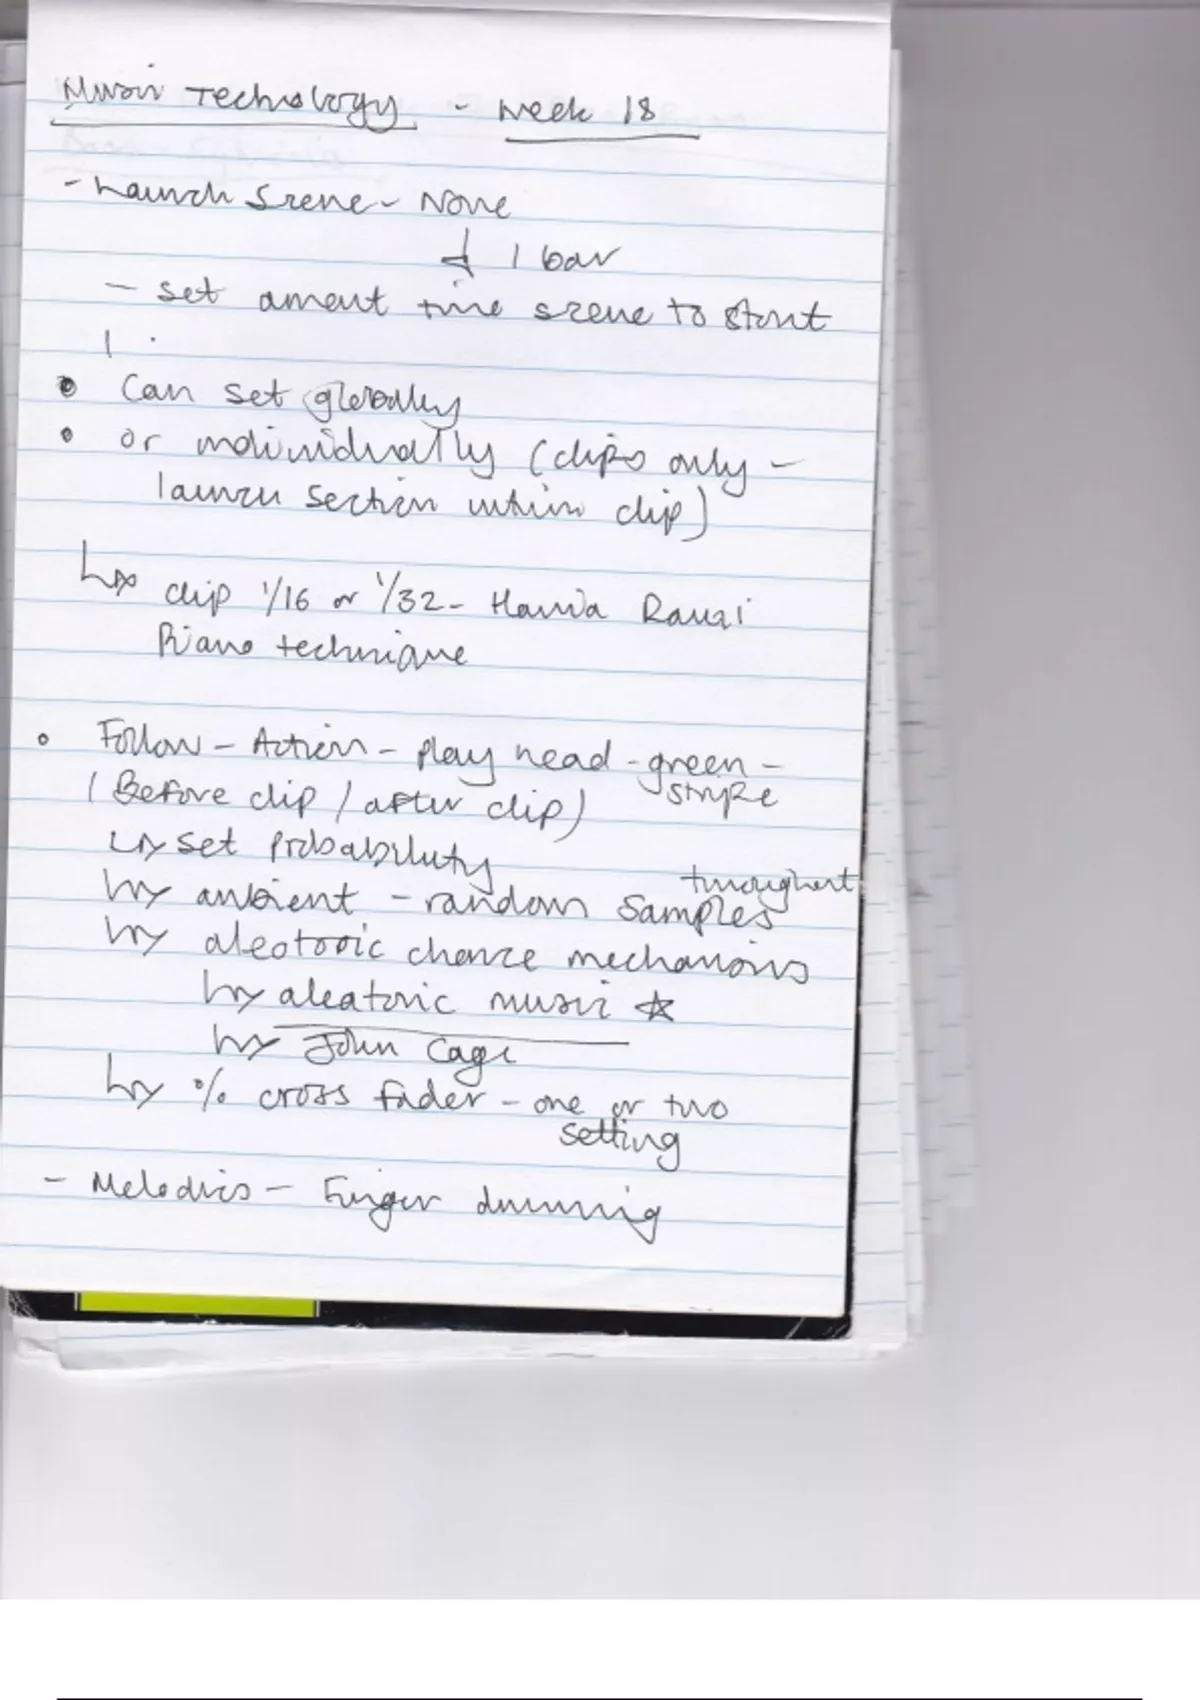 Music Technology - Week 18
- Launch Scene - None
↓ 1 bar
- set amount time scene to start
• Can set globally
• or individually (clips only -
launch section within clip)
↳ clip 1/16 or 1/32 - Hania Rani
Piano technique
• Follow - Action - play head - green -
stripe
(Before clip / after clip)
↳ set probability
↳ ambient - random samples
throughout
↳ aleotoric chance mechanisms
↳ aleatoric music ☆
↳ John Cage
↳ % cross fader - one or two
setting
- Melodics - Finger drumming